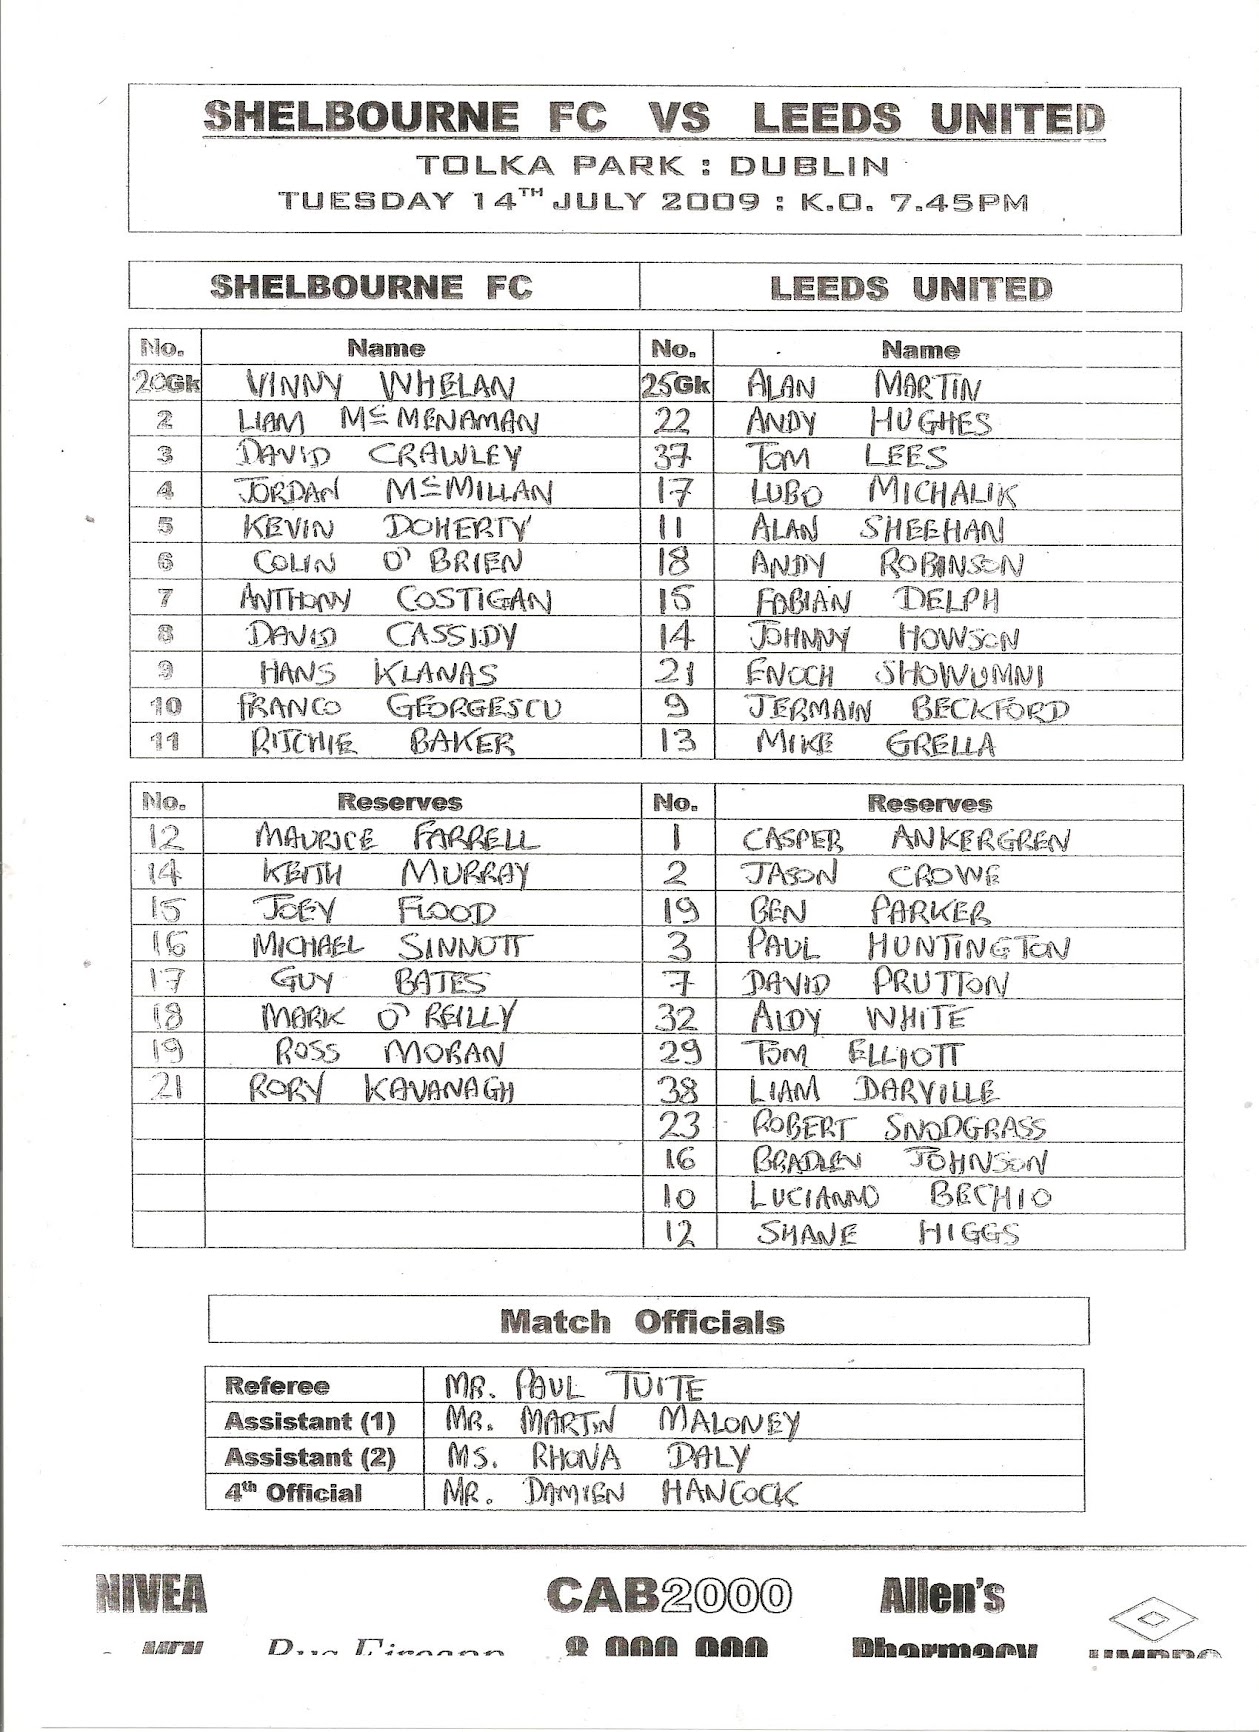 SHELBOURNE FC VS LEEDS UNITED
TOLKA PARK : DUBLIN
TUESDAY 14TH JULY 2009 : K.O. 7.45PM
SHELBOURNE FC LEEDS UNITED
No. Name No. Name
20Gk VINNY WHELAN 25Gk ALAN MARTIN
2 LIAM McMENAMAN 22 ANDY HUGHES
3 DAVID CRAWLEY 37 TOM LEES
4 JORDAN McMILLAN 17 LUBO MICHALIK
5 KEVIN DOHERTY 11 ALAN SHEEHAN
6 COLIN O'BRIEN 18 ANDY ROBINSON
7 ANTHONY COSTIGAN 15 FABIAN DELPH
8 DAVID CASSIDY 14 JOHNNY HOWSON
9 HANS KLANAS 21 ENOCH SHOWUMNI
10 FRANCO GEORGESCU 9 JERMAIN BECKFORD
11 RITCHIE BAKER 13 MIKE GRELLA
No. Reserves No. Reserves
12 MAURICE FARRELL 1 CASPER ANKERGREN
14 KEITH MURRAY 2 JASON CROWE
15 JOEY FLOOD 19 BEN PARKER
16 MICHAEL SINNOTT 3 PAUL HUNTINGTON
17 GUY BATES 7 DAVID PRUTTON
18 MARK O'REILLY 32 AIDY WHITE
19 ROSS MORAN 29 TOM ELLIOTT
21 RORY KAVANAGH 38 LIAM DARVILLE
23 ROBERT SNODGRASS
16 BRADLEY JOHNSON
10 LUCIANNO BECHIO
12 SHANE HIGGS
Match Officials
Referee MR. PAUL TUITE
Assistant (1) MR. MARTIN MALONEY
Assistant (2) MS. RHONA DALY
4th Official MR. DAMIEN HANCOCK
NIVEA CAB2000 Allen's
Bus Eireann 8 000 000 Pharmacy UMBRO